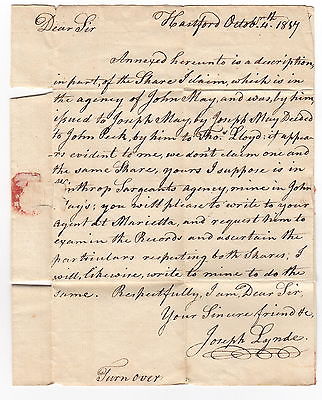 Dear Sir Hartford Octobr. 4th. 1807
Annexed hereunto is a description,
in part, of the Share I claim, which is in
the agency of John May, and was, by him
issued to Joseph May, by Joseph May Deeded
to John Peck, by him to Thos. Lloyd: it appears
evident to me, we dont claim one and
the same Share, yours I suppose is in
Winthrop Sargeants agency, mine in John
May's; you will please to write to your
agent at Marietta, and request him to
examin the Records and ascertain the
particulars respecting both Shares; I
will, likewise, write to mine to do the
same. Respectfully, I am Dear Sir,
Your Sincere friend &c.
Joseph Lynde
Turn over